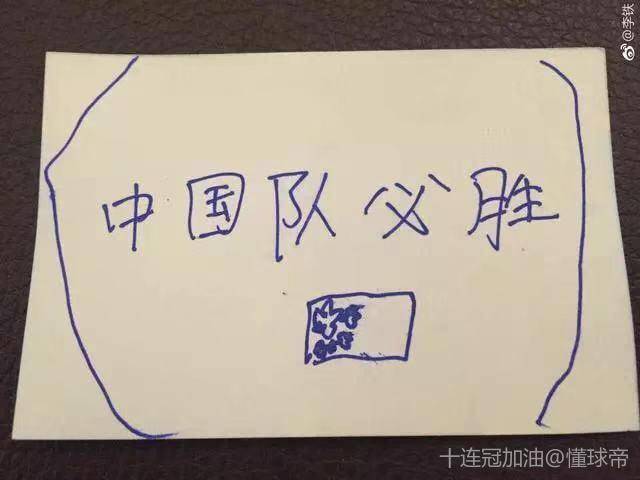 @李铁
中国队必胜
十连冠加油@懂球帝